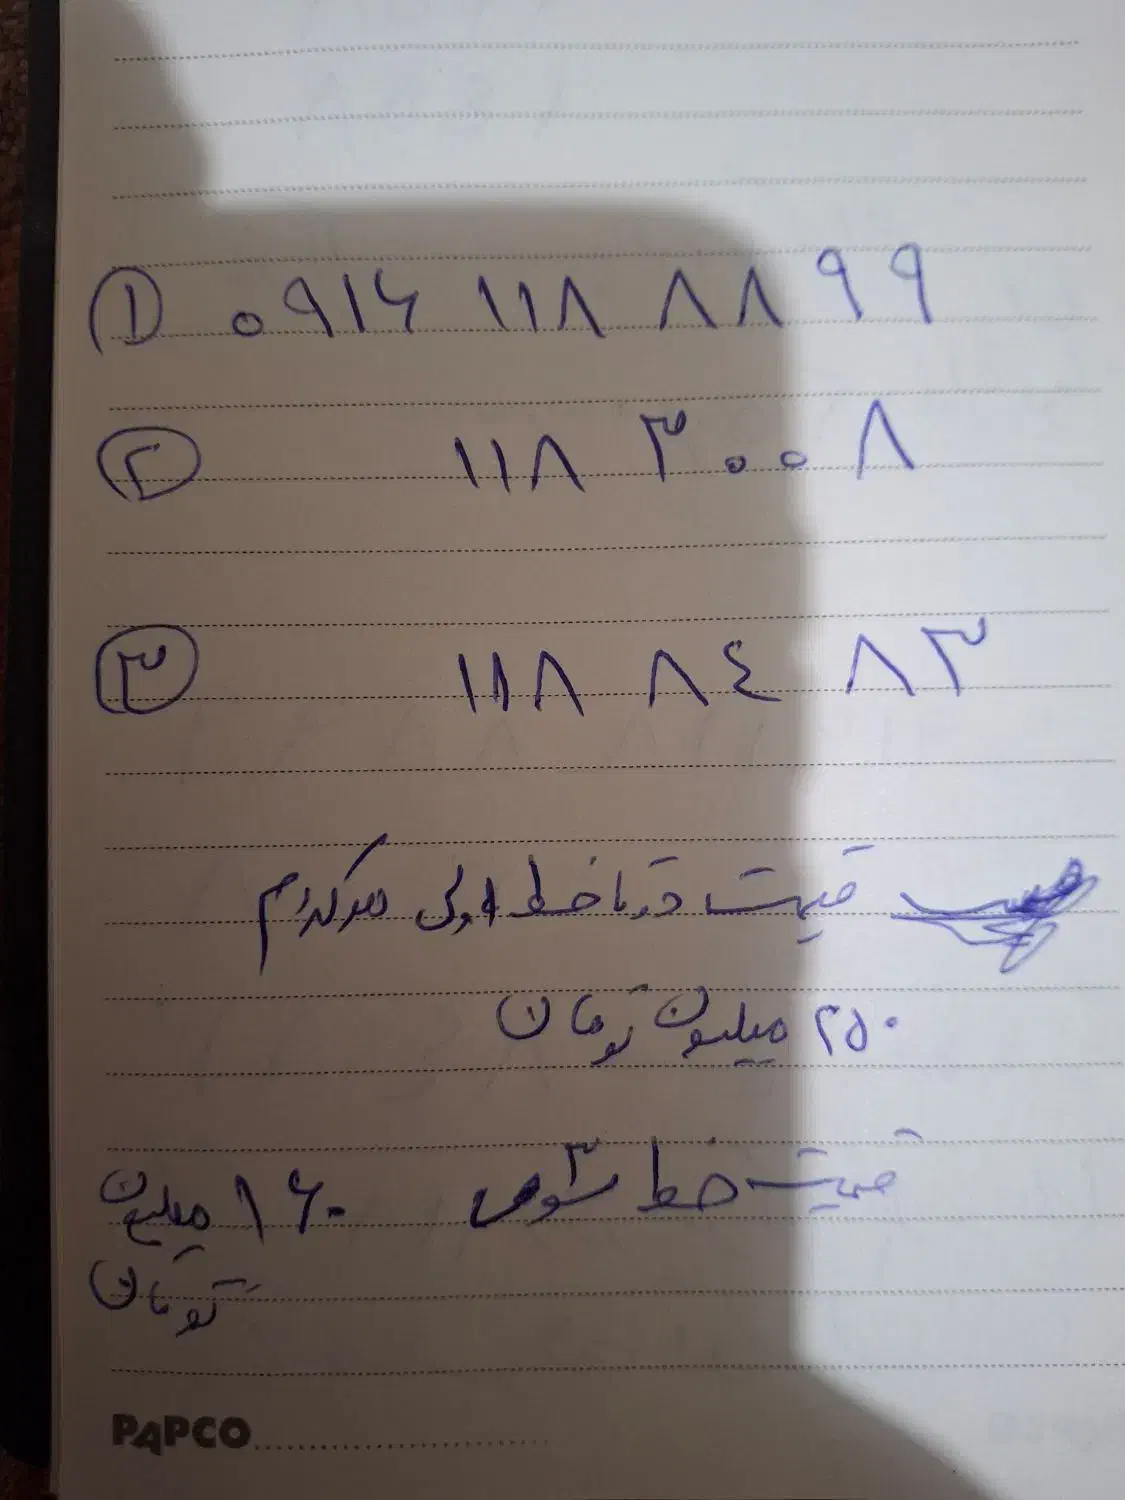 ① ۰۹۱۶ ۱۱۸ ۸۸ ۹۹
② ۱۱۸ ۳۰۰۸
③ ۱۱۸ ۸۴ ۸۳
قیمت دوتا خط اولی هرکدام
۲۵۰ میلیون تومان
قیمت خط سومی ۱۶۰ میلیون
تومان
PAPCO